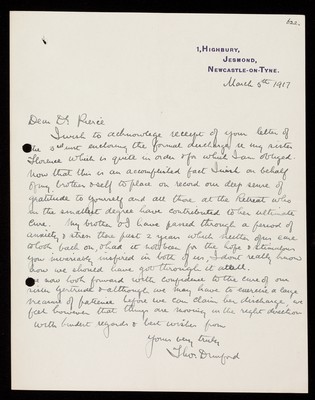 122.
1, HIGHBURY,
JESMOND,
NEWCASTLE-ON-TYNE.
March 5th 1917
Dear Dr Pierce
I wish to acknowledge receipt of your letter of
the inst enclosing the formal discharge of my sister
Florence which is quite in order & for which I am obliged.
Now that this is an accomplished fact I wish on behalf
of my brother & self to place on record our deep sense of
gratitude to yourself and all those at the Retreat who
in the smallest degree have contributed to her ultimate
cure. My brother & I have passed through a period of
anxiety & stress these past 2 years which neither of us care
to look back on, & had it not been for the hope &
you invariably inspired in both of us, I dont really know
how we should have got through it at all.
We now look forward with confidence to the cure of our
sister Gertrude & although we may have to exercise a large
measure of patience before we can claim her discharge, we
feel however that things are moving in the right direction
With kindest regards & best wishes from
Yours very truly
Thos Dymford